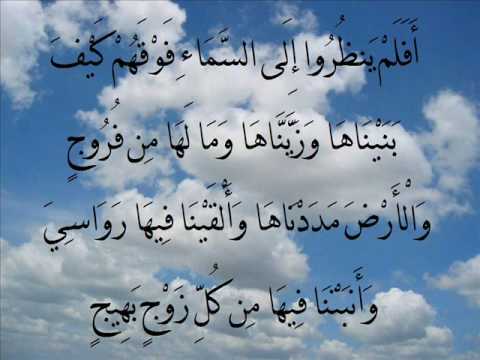 أَفَلَمْ يَنظُرُوا إِلَى السَّمَاءِ فَوْقَهُمْ كَيْفَ
بَنَيْنَاهَا وَزَيَّنَّاهَا وَمَا لَهَا مِن فُرُوجٍ
وَالْأَرْضَ مَدَدْنَاهَا وَأَلْقَيْنَا فِيهَا رَوَاسِيَ
وَأَنبَتْنَا فِيهَا مِن كُلِّ زَوْجٍ بَهِيجٍ